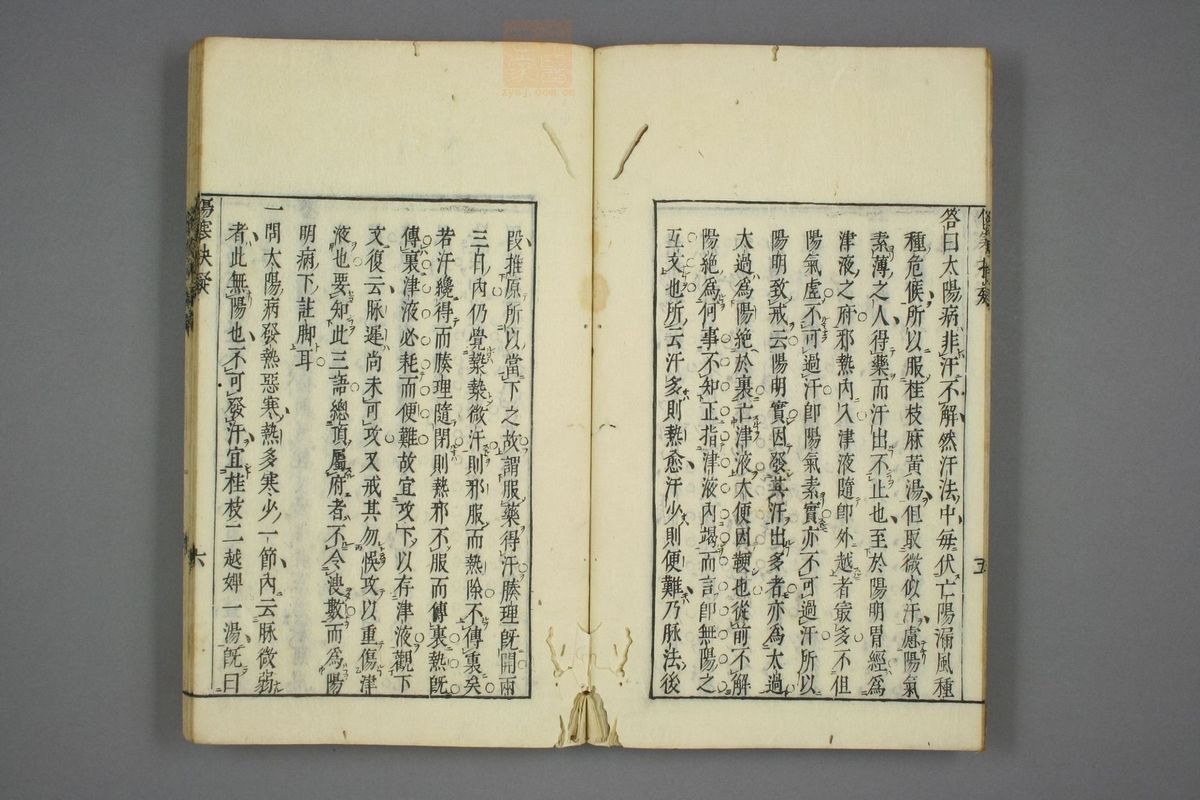 答曰太陽病非汗不解然汗法中每伏亡陽漏風種
種危候所以服桂枝麻黃湯但取微似汗慮陽氣
素薄之人得藥而汗出不止也至於陽明胃經爲
津液之府邪熱內入津液隨卽外越者最多不但
陽氣虛不可過汗卽陽氣素實亦不可過汗所以
陽明致戒云陽明實因發其汗出多者亦爲太過
太過爲陽絕於裏亡津液大便因鞕也從前不解
陽絕爲何事不知正指津液內竭而言卽無陽之
互文也所云汗多則熱愈汗少則便難乃脉法後
五
段推原所以當下之故謂服藥得汗腠理旣開兩
三日內仍覺漐漐微汗則邪服而熱除不傳裏矣
若汗纔得而腠理隨閉則熱邪不服而傳裏熱旣
傳裏津液必耗而便難故宜攻下以存津液觀下
文復云脉遲尚未可攻又戒其勿悞攻以重傷津
液也要知此三語總頂屬府者不令溲數而爲陽
明病下註脚耳
一問太陽病發熱惡寒熱多寒少一節內云脉微弱
者此無陽也不可發汗宜桂枝二越婢一湯旣曰
傷寒抉疑
六
zysj.com.cn